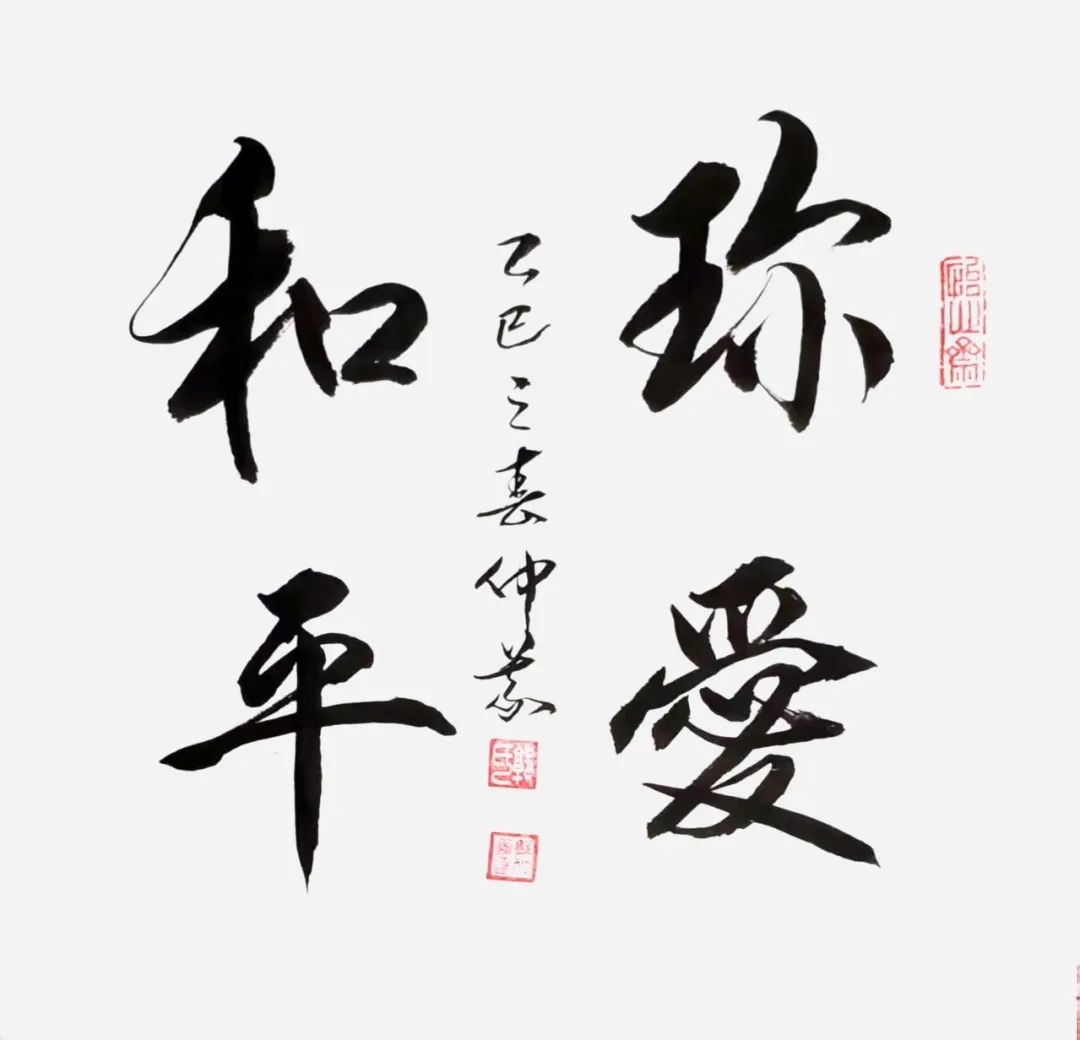 珍愛
和平
乙巳之春仲